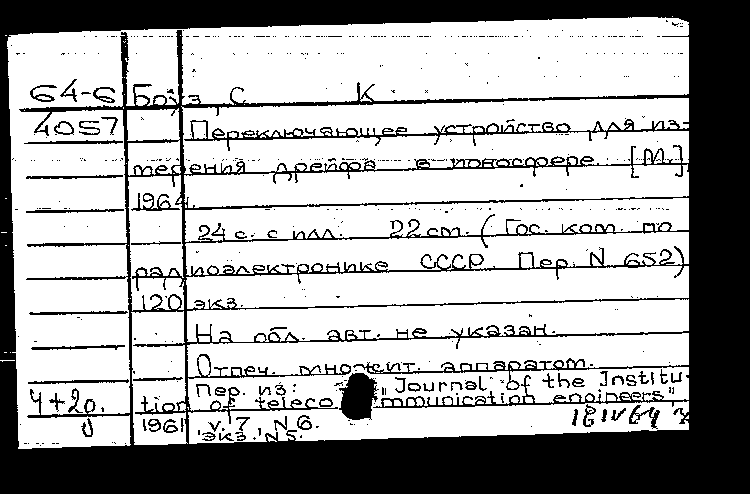 64-6 Боуз, С К
4057 Переключающее устройство для из-
мерения дрейфа в ионосфере [М.],
1964.
24 с. с илл. 22 cm. (Гос. ком. по
радиоэлектронике СССР. Пер. N 652)
120 экз.
На обл. авт. не указан.
Отпеч. множит. аппаратом.
Пер. из: „Journal of the Institu-
4+2о. tion of telecommunication engineers",
1961, v. 7, N 6.
экз. N5.